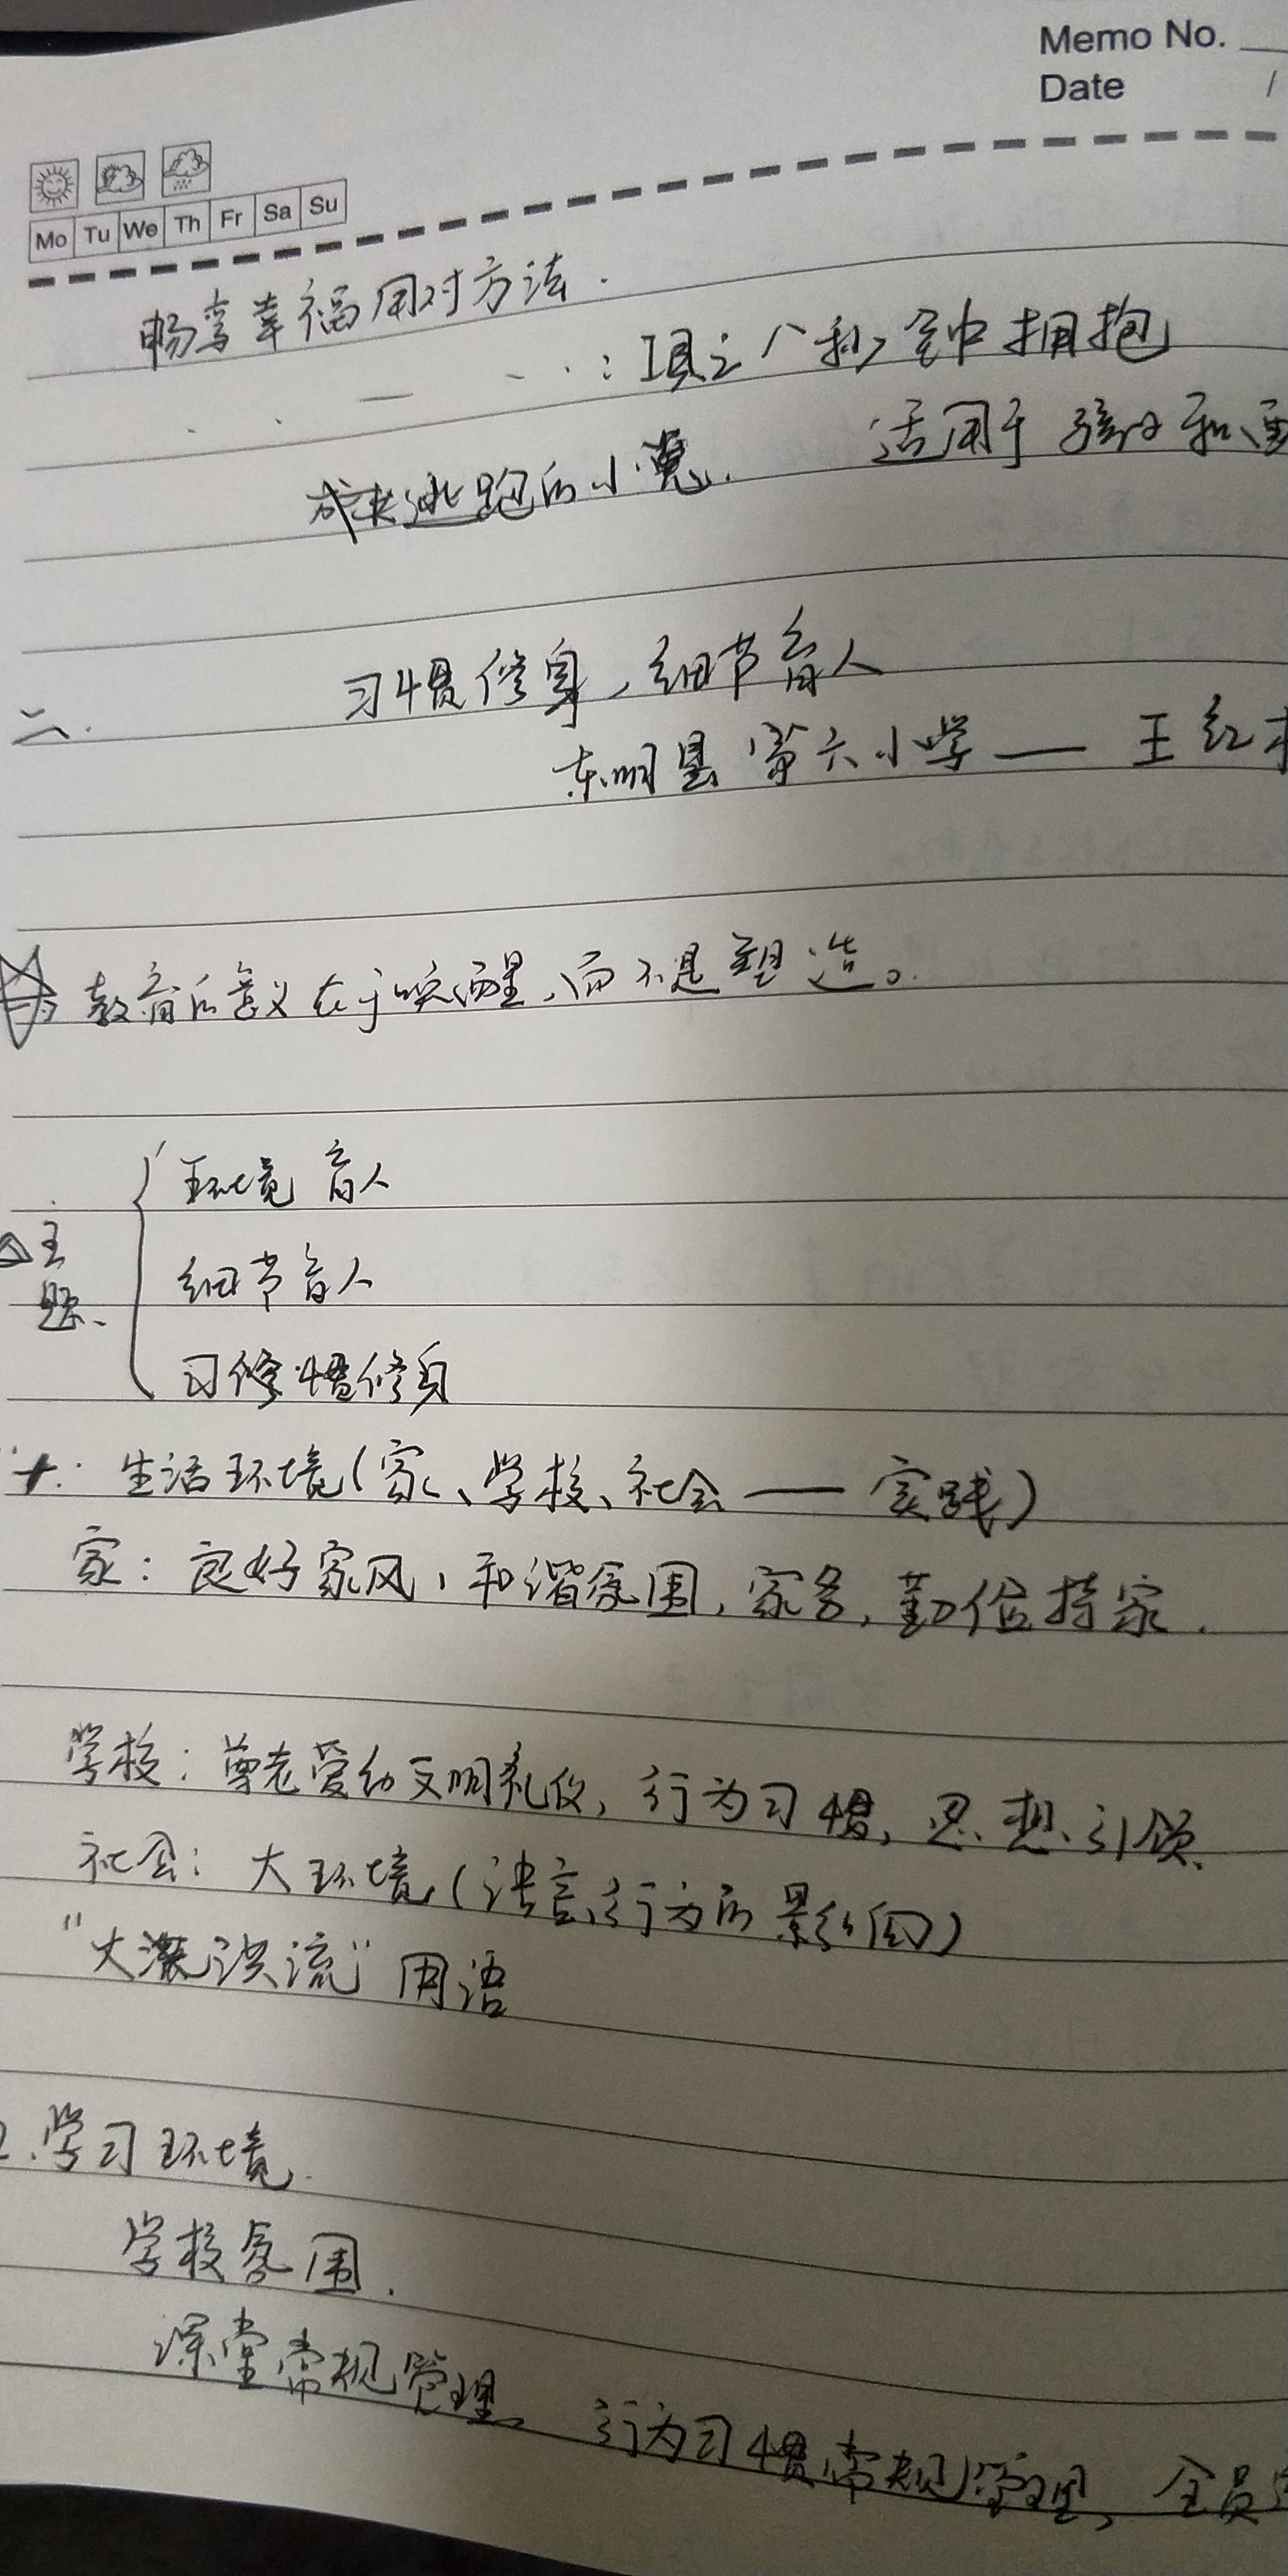 Memo No.
Date /
Mo Tu We Th Fr Sa Su
畅享幸福用对方法.
八秒钟拥抱
逃跑的小兔. 适用于孩子和
二. 习惯修身,细节育人
东明县第六小学——王红
教育的意义在于唤醒,而不是塑造。
主题、
环境育人
细节育人
习惯修身
生活环境(家、学校、社会——实践)
家:良好家风,和谐氛围,家务,勤俭持家.
学校:尊老爱幼文明礼仪,行为习惯,思想引领、
社会:大环境(语言,行为的影响)
洪流"用语
2.学习环境.
学校氛围.
课堂常规管理、行为习惯常规管理、全员